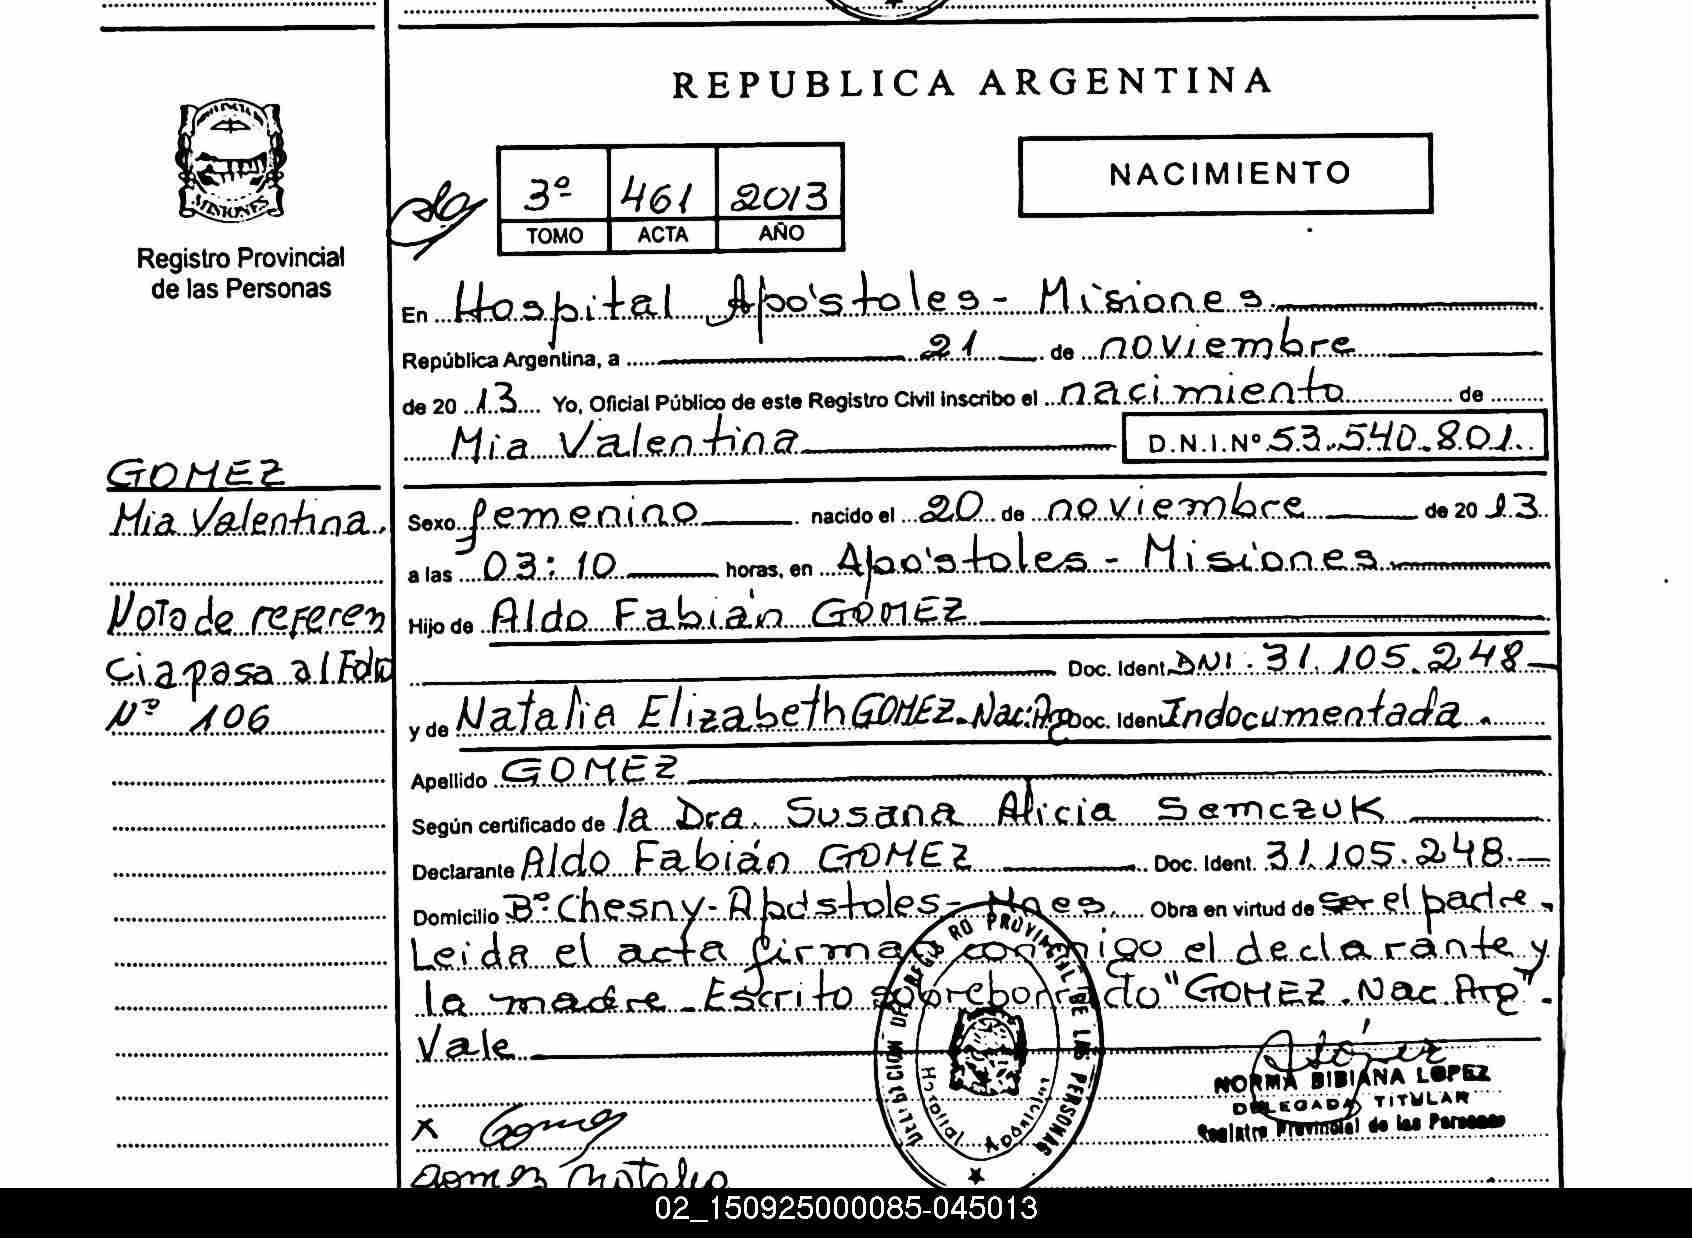 REPUBLICA ARGENTINA
MISIONES
Registro Provincial
de las Personas
3º 461 2013
TOMO ACTA AÑO
NACIMIENTO
En Hospital Apóstoles - Misiones
República Argentina, a 21 de noviembre
de 20 13 Yo, Oficial Público de este Registro Civil inscribo el nacimiento de
Mia Valentina D.N.I.Nº 53.540.801
GOMEZ
Mia Valentina.
Sexo femenino nacido el 20 de noviembre de 20 13
a las 03:10 horas, en Apóstoles - Misiones
Nota de referen
cia pasa al Folio
Nº 106
Hijo de Aldo Fabián GOMEZ
Doc. Ident. DNI. 31.105.248
y de Natalia Elizabeth GOMEZ. Nac. Arg Doc. Ident Indocumentada.
Apellido GOMEZ
Según certificado de la Dra. Susana Alicia Semczuk
Declarante Aldo Fabián GOMEZ Doc. Ident. 31.105.248.
Domicilio Bº Chesny - Apóstoles - Mnes. Obra en virtud de ser el padre.
Leida el acta firman conmigo el declarante y
la madre. Escrito sobreborrado "GOMEZ. Nac. Arg".
Vale
DELEGACION DEL REGISTRO PROVINCIAL DE LAS PERSONAS
Hospital Apóstoles
NORMA BIBIANA LOPEZ
DELEGADA TITULAR
Registro Provincial de las Personas
x Gomez
Gomez Natalia
02_150925000085-045013